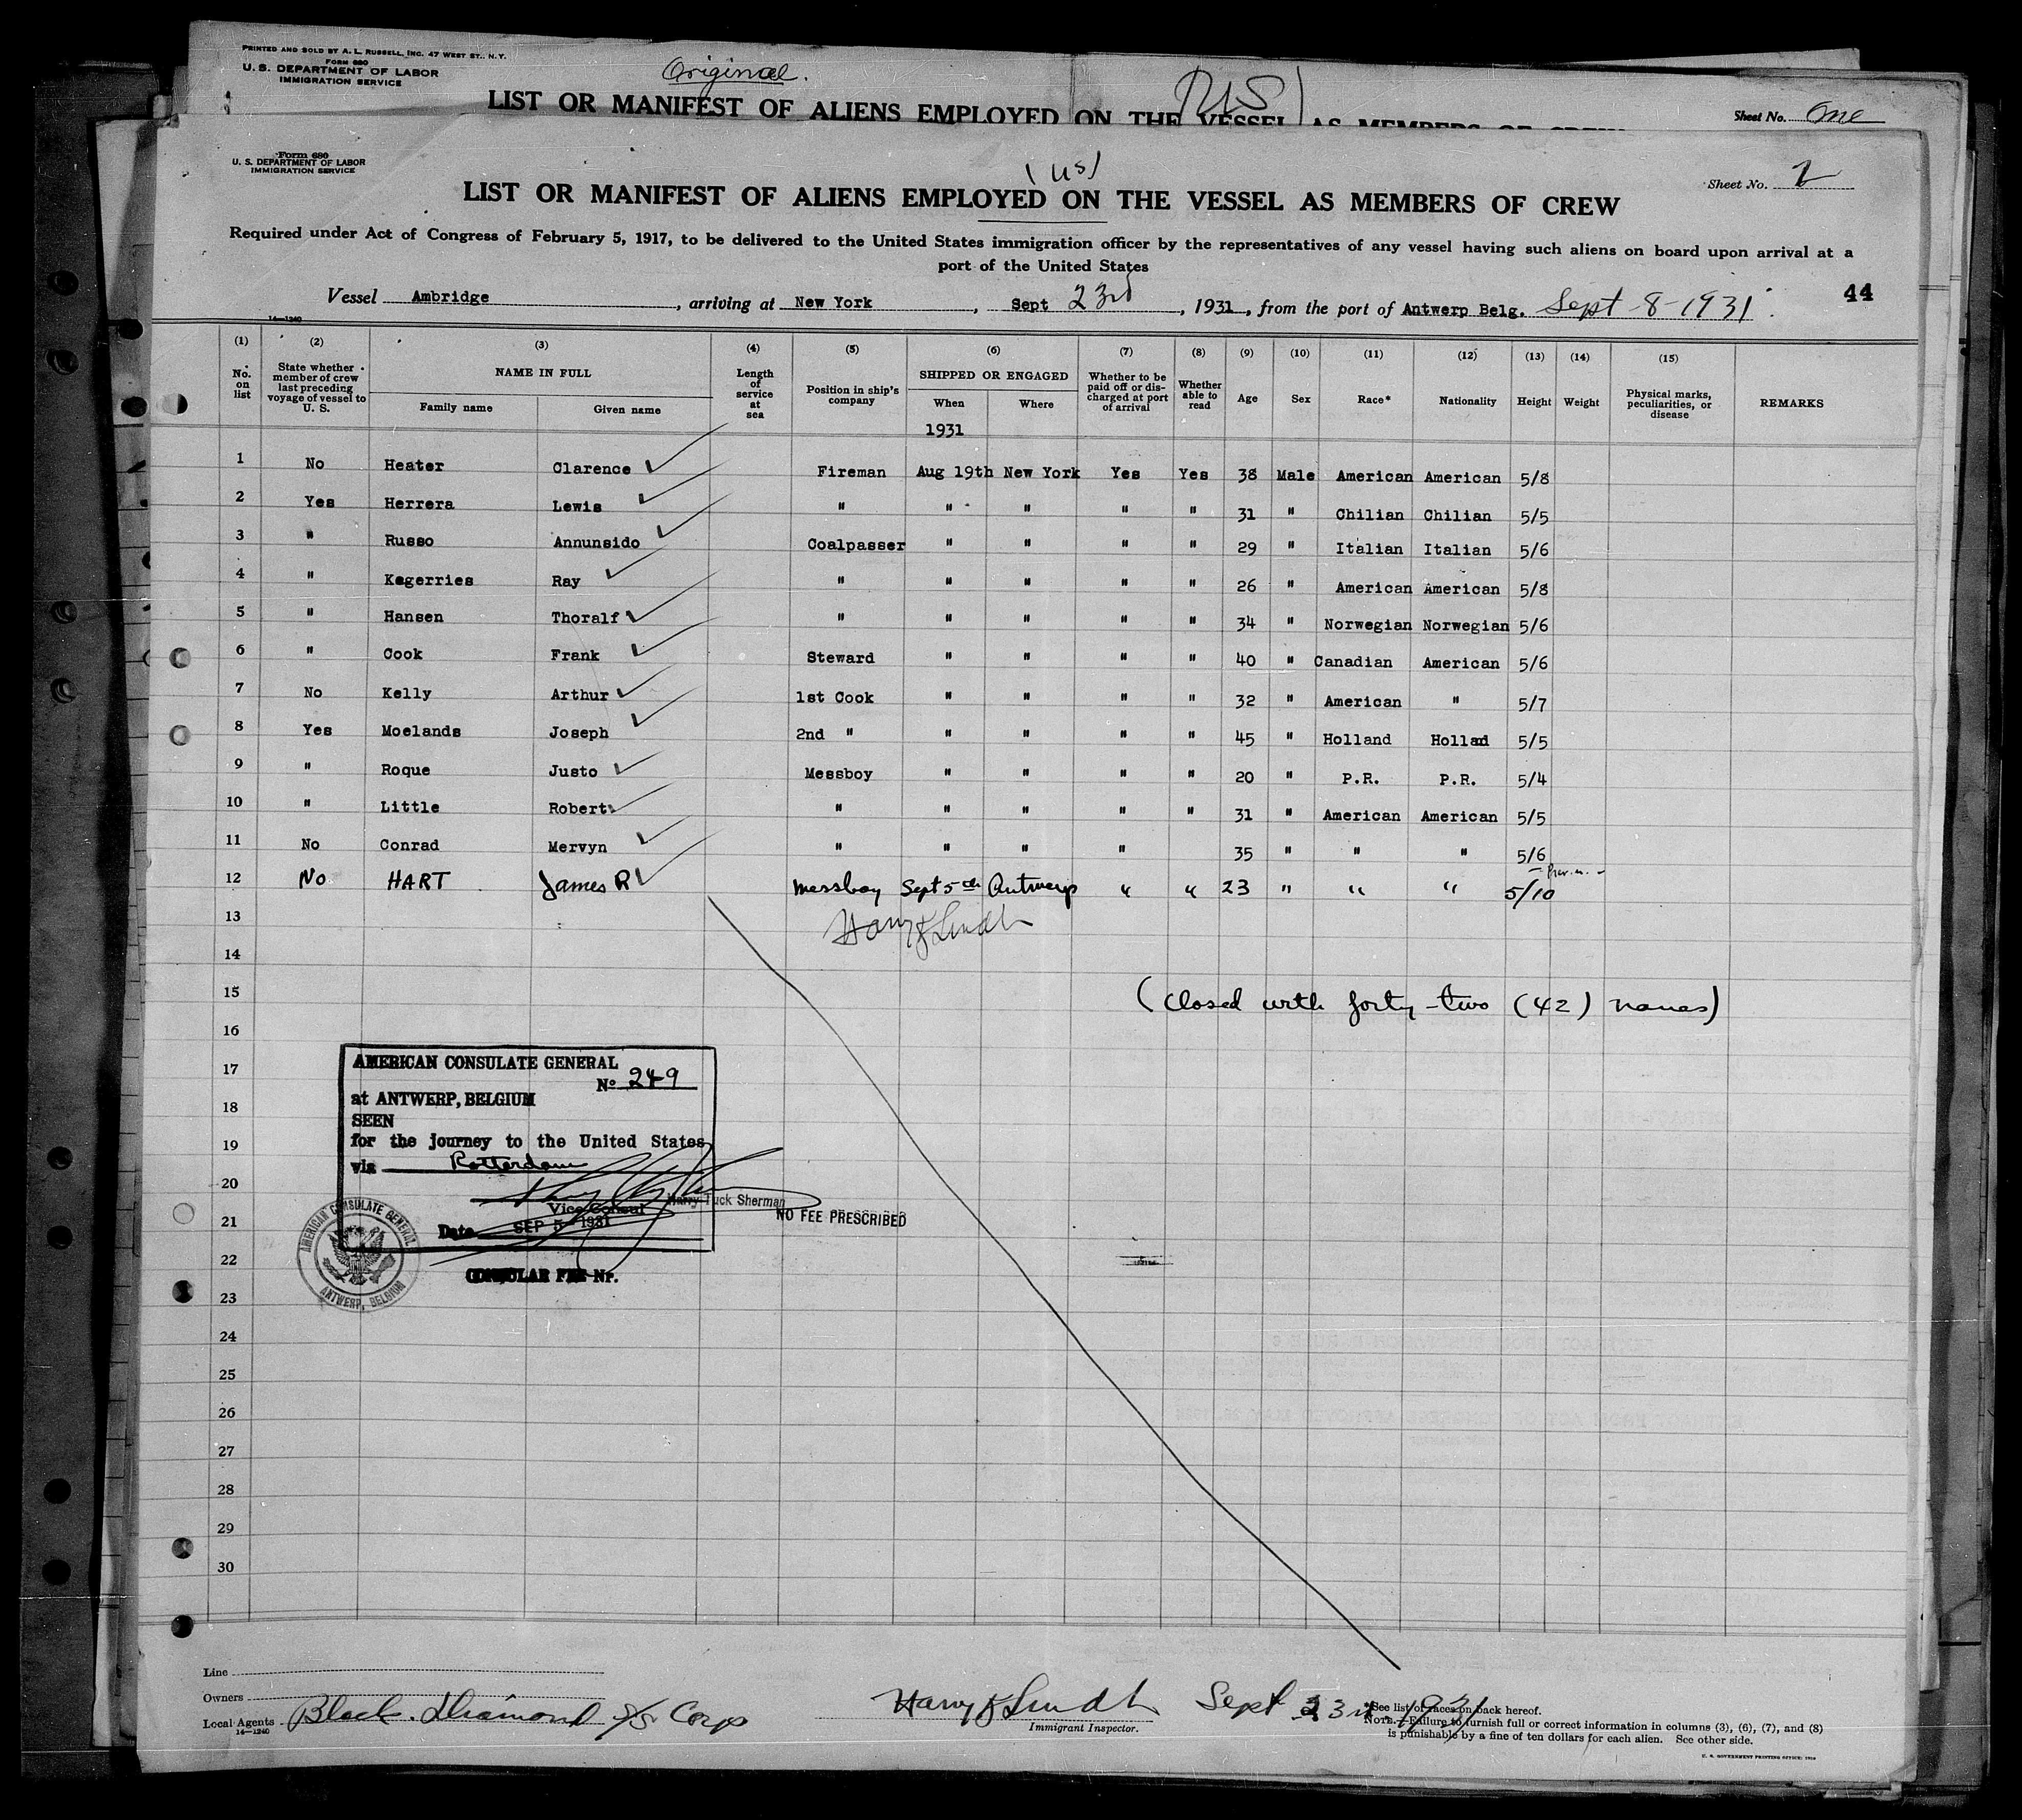 PRINTED AND SOLD BY A. L. RUSSELL, INC. 47 WEST ST., N.Y.
FORM 680
U. S. DEPARTMENT OF LABOR
IMMIGRATION SERVICE
Original.
(US)
LIST OR MANIFEST OF ALIENS EMPLOYED ON THE VESSEL AS MEMBERS OF CREW
Sheet No. One
Form 680
U. S. DEPARTMENT OF LABOR
IMMIGRATION SERVICE
(US)
Sheet No. 2
LIST OR MANIFEST OF ALIENS EMPLOYED ON THE VESSEL AS MEMBERS OF CREW
Required under Act of Congress of February 5, 1917, to be delivered to the United States immigration officer by the representatives of any vessel having such aliens on board upon arrival at a
port of the United States
Vessel Ambridge, arriving at New York, Sept 23rd, 1931, from the port of Antwerp Belg. Sept 8-1931.
44
14-1240
(1) (2) (3) (4) (5) (6) (7) (8) (9) (10) (11) (12) (13) (14) (15)
No. on list
State whether member of crew last preceding voyage of vessel to U. S.
NAME IN FULL
Family name
Given name
Length of service at sea
Position in ship's company
SHIPPED OR ENGAGED
When
Where
Whether to be paid off or discharged at port of arrival
Whether able to read
Age
Sex
Race*
Nationality
Height
Weight
Physical marks, peculiarities, or disease
REMARKS
1931
1 No Heater Clarence Fireman Aug 19th New York Yes Yes 38 Male American American 5/8
2 Yes Herrera Lewis " " " " " 31 " Chilian Chilian 5/5
3 " Russo Annunsido Coalpasser " " " " 29 " Italian Italian 5/6
4 " Kegerries Ray " " " " " 26 " American American 5/8
5 " Hansen Thoralf " " " " " 34 " Norwegian Norwegian 5/6
6 " Cook Frank Steward " " " " 40 " Canadian American 5/6
7 No Kelly Arthur 1st Cook " " " " 32 " American " 5/7
8 Yes Moelands Joseph 2nd " " " " " 45 " Holland Hollad 5/5
9 " Roque Justo Messboy " " " " 20 " P.R. P.R. 5/4
10 " Little Robert " " " " " 31 " American American 5/5
11 No Conrad Mervyn " " " " 35 " " " 5/6
12 No HART James R Messboy Sept 5th Antwerp " " 23 " " " 5/10
13
Harry Lindh
14
15
(Closed with forty-two (42) names)
16
17
18
19
20
21
22
23
24
25
26
27
28
29
30
AMERICAN CONSULATE GENERAL
No 249
at ANTWERP, BELGIUM
SEEN
for the journey to the United States
via Rotterdam
Harry Tuck Sherman
Vice Consul
Date SEP 5 1931
NO FEE PRESCRIBED
CONSULAR FEE Nr.
AMERICAN CONSULATE GENERAL
ANTWERP, BELGIUM
Line
Owners
Local Agents Black Diamond S/S Corp
14-1240
Harry Lindh Sept 23rd 1931
Immigrant Inspector.
*See list of races on back hereof.
NOTE.—Failure to furnish full or correct information in columns (3), (6), (7), and (8)
is punishable by a fine of ten dollars for each alien. See other side.
U. S. GOVERNMENT PRINTING OFFICE: